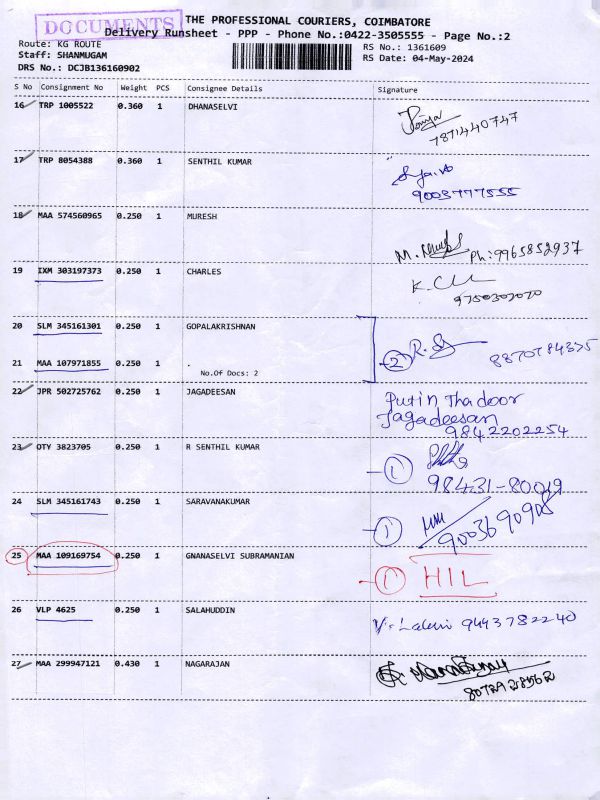 DOCUMENTS
THE PROFESSIONAL COURIERS, COIMBATORE
Delivery Runsheet - PPP - Phone No.:0422-3505555 - Page No.:2
Route: KG ROUTE
Staff: SHANMUGAM
DRS No.: DCJB136160902
RS No.: 1361609
RS Date: 04-May-2024
S No Consignment No Weight PCS Consignee Details Signature
16 TRP 1005522 0.360 1 DHANASELVI
7871440747
17 TRP 8054388 0.360 1 SENTHIL KUMAR
9003777555
18 MAA 574560965 0.250 1 MURESH
Ph:9965852937
19 IXM 303197373 0.250 1 CHARLES
9750302020
20 SLM 345161301 0.250 1 GOPALAKRISHNAN
21 MAA 107971855 0.250 1 .
No.Of Docs: 2
2 8870784375
22 JPR 502725762 0.250 1 JAGADEESAN
Putin Thadoor
Jagadeesan
9842202254
23 OTY 3823705 0.250 1 R SENTHIL KUMAR
1
98431-80019
24 SLM 345161743 0.250 1 SARAVANAKUMAR
1 9003690908
25 MAA 109169754 0.250 1 GNANASELVI SUBRAMANIAN
1 HIL
26 VLP 4625 0.250 1 SALAHUDDIN
9443782240
27 MAA 299947121 0.430 1 NAGARAJAN